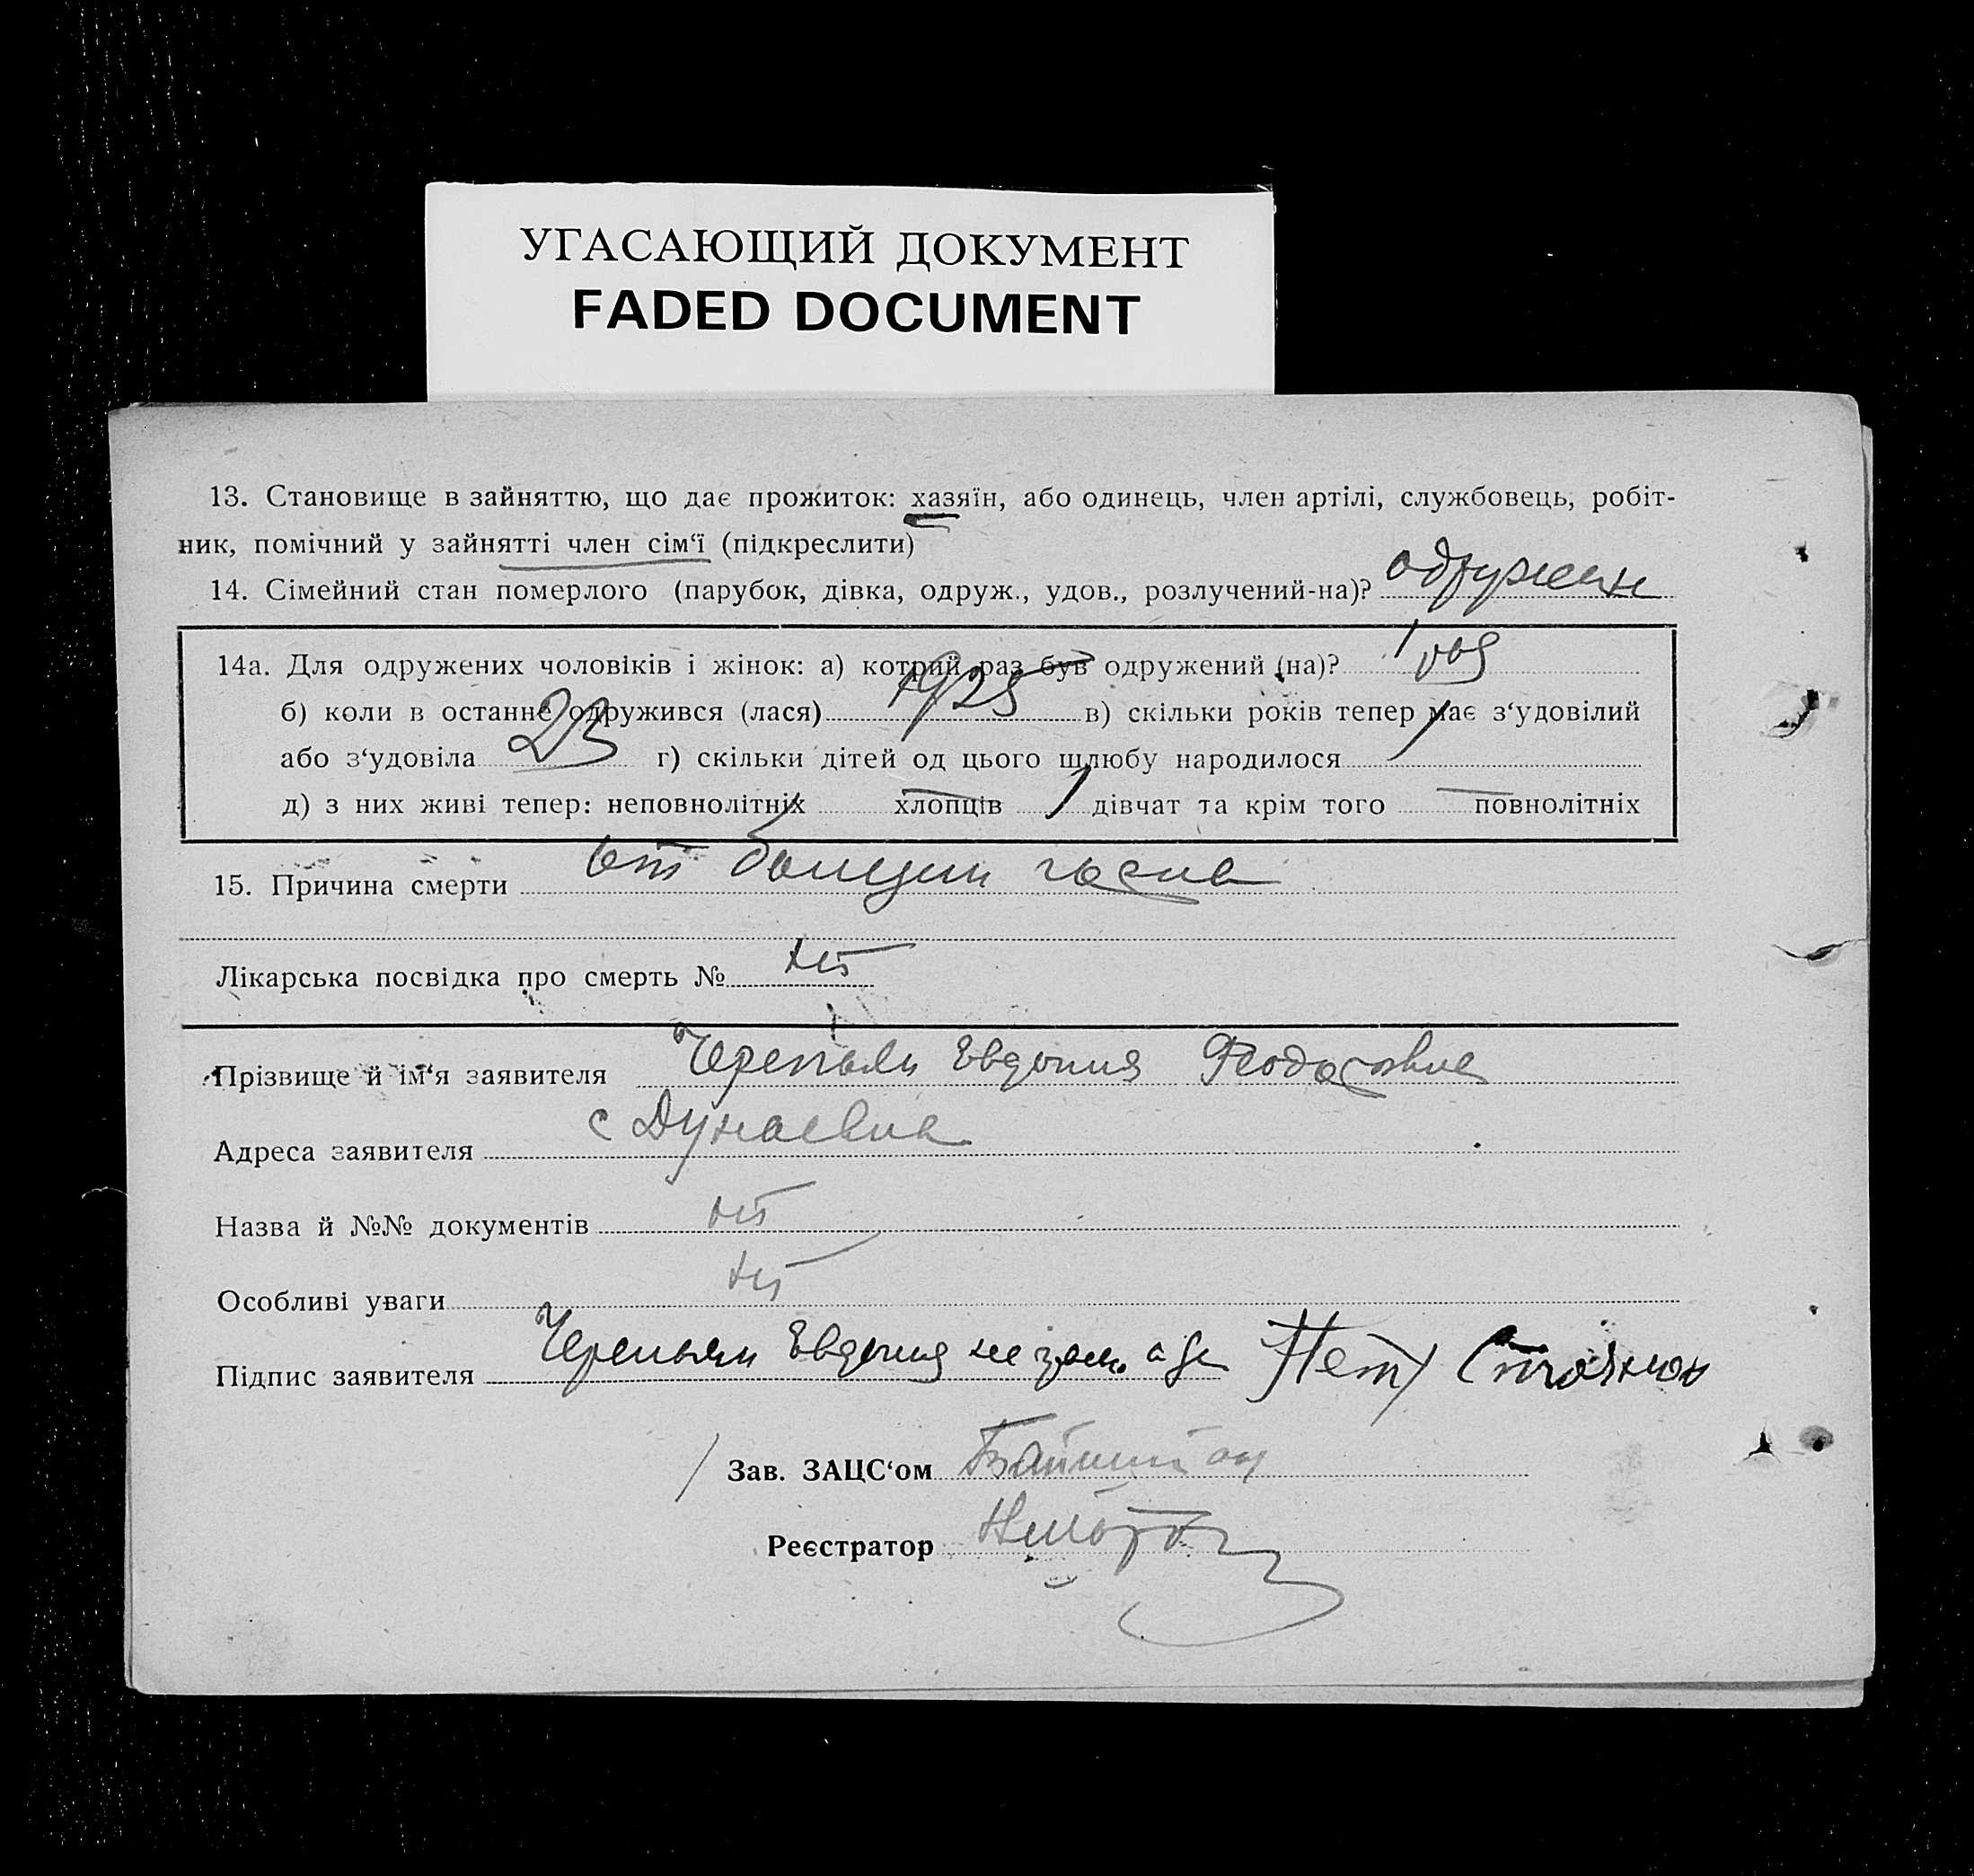 УГАСАЮЩИЙ ДОКУМЕНТ
FADED DOCUMENT
13. Становище в зайняттю, що дає прожиток: хазяїн, або одинець, член артілі, службовець, робіт-
ник, помічний у зайнятті член сім‘ї (підкреслити)
14. Сімейний стан померлого (парубок, дівка, одруж., удов., розлучений-на)? одружен
14а. Для одружених чоловіків і жінок: а) котрий раз був одружений (на)? 1
б) коли в останнє одружився (лася) 1925 в) скільки років тепер має з‘удовілий
або з‘удовіла 23 г) скільки дітей од цього шлюбу народилося 1
д) з них живі тепер: неповнолітніх — хлопців 1 дівчат та крім того — повнолітніх
15. Причина смерти от
Лікарська посвідка про смерть № нет
Прізвище й ім‘я заявителя Евдокия
Адреса заявителя с Дунаевка
Назва й №№ документів нет
Особливі уваги нет
Підпис заявителя Евдокия
Зав. ЗАЦС‘ом
Реєстратор